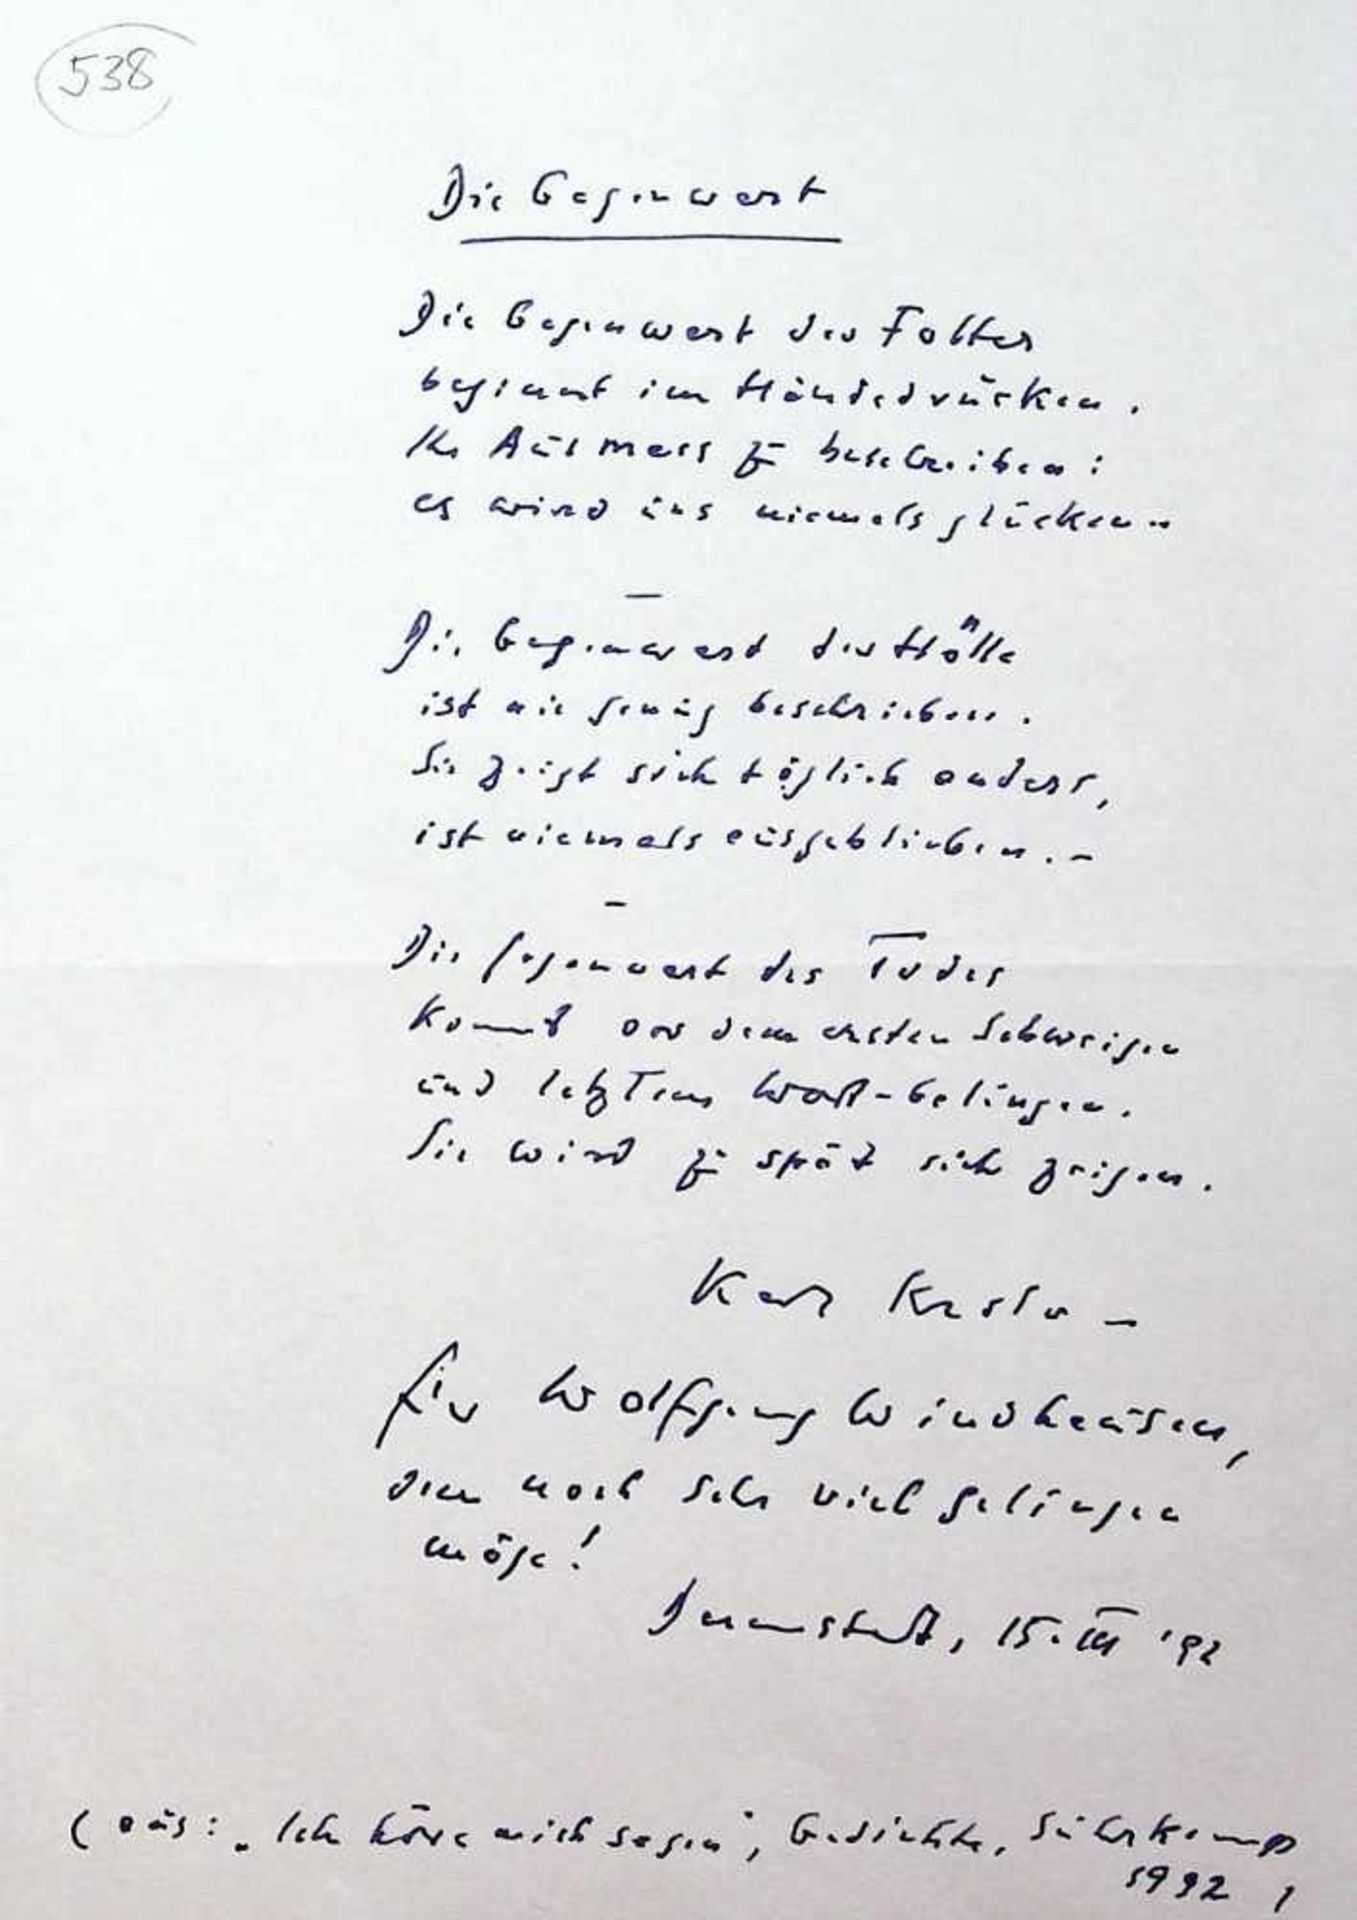 538
Die Gegenwart
Die Gegenwart der Folter
beginnt im Händedrücken.
Ihr Ausmass zu beschreiben:
es wird uns niemals glücken..
—
Die Gegenwart der Hölle
ist nie genug beschrieben.
Sie zeigt sich täglich anders,
ist niemals ausgeblieben. –
–
Die Gegenwart des Todes
kommt vor dem ersten Schweigen
und letztem Wort-Gelingen.
Sie wird zu spät sich zeigen.
Karl Krolow –
für Wolfgang Windhausen,
dem noch sehr viel gelingen
möge!
Darmstadt, 15. III '92
(aus: „Ich höre mich sagen", Gedichte, Suhrkamp
1992)